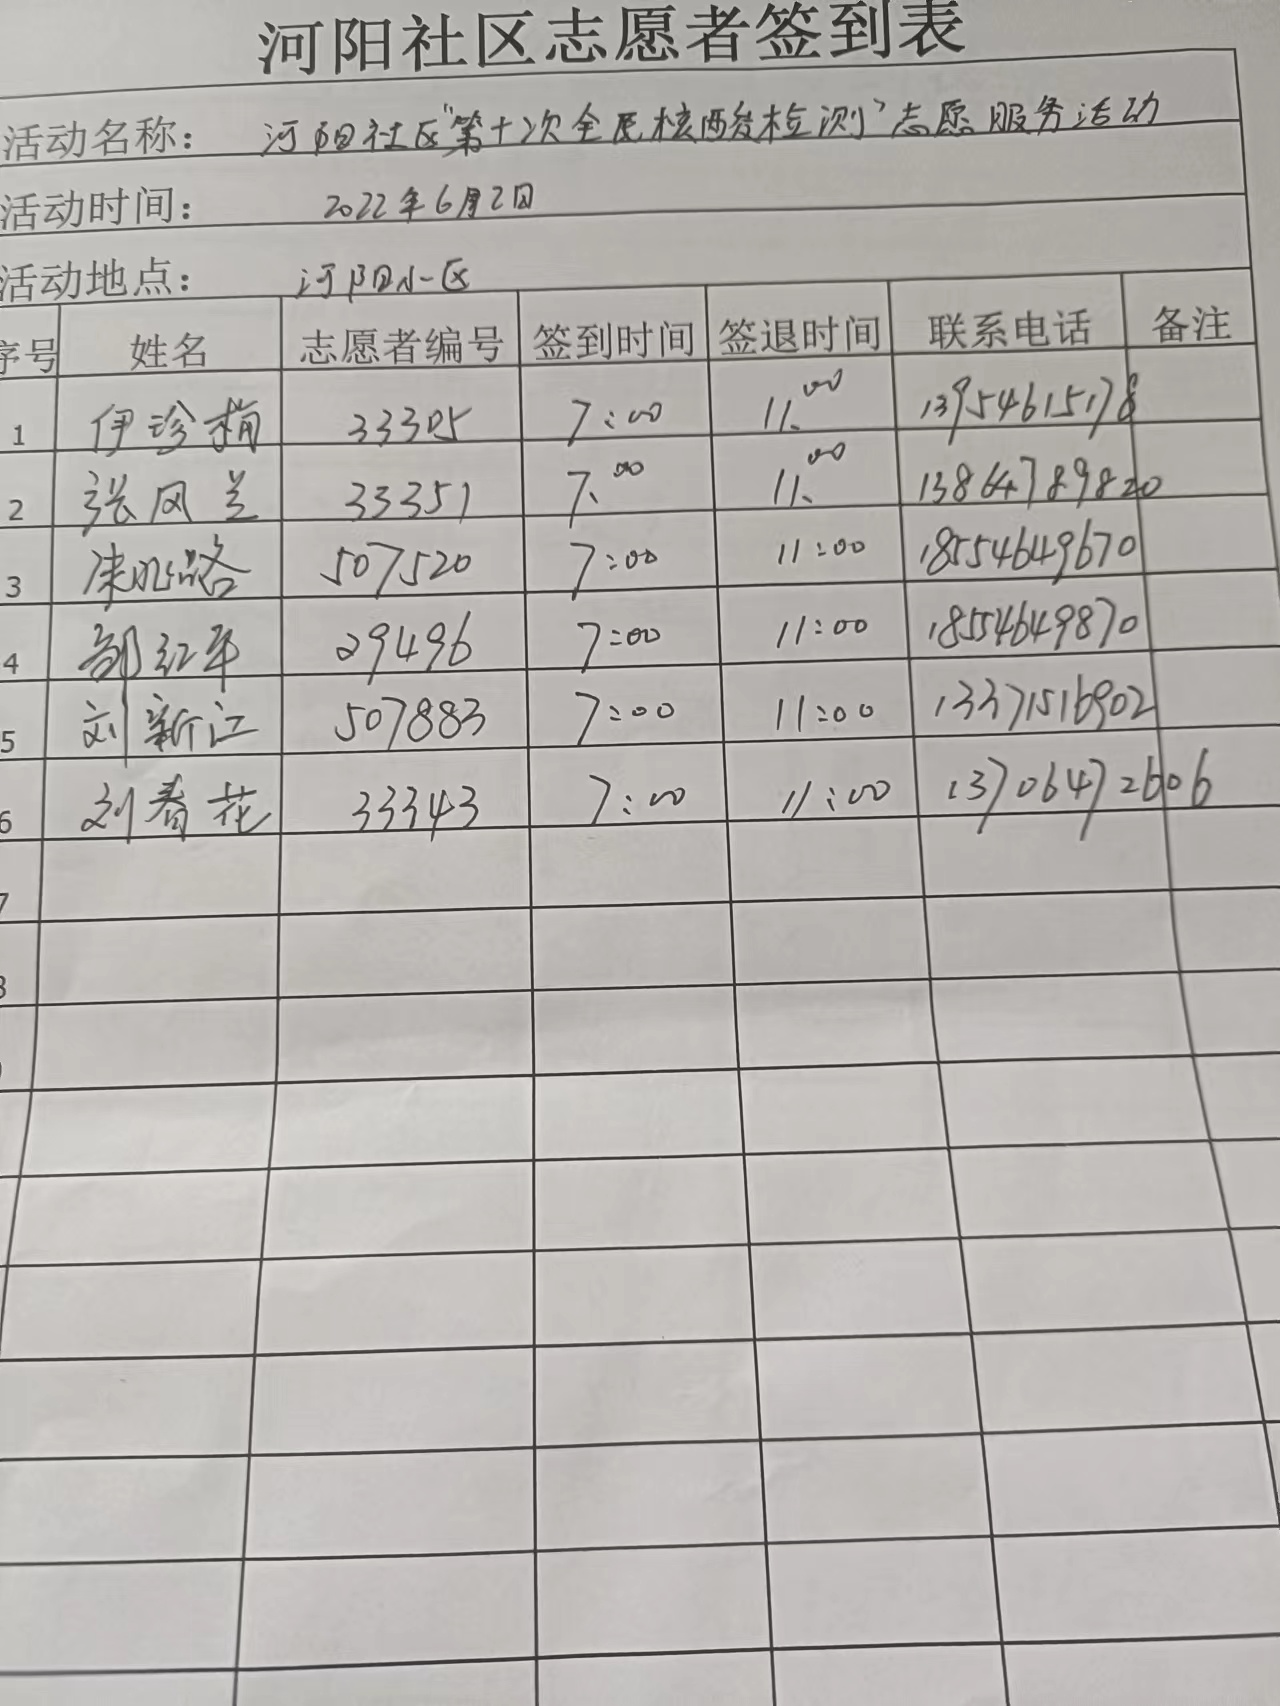 河阳社区志愿者签到表
活动名称： 河阳社区"第十次全民核酸检测"志愿服务活动
活动时间： 2022年6月2日
活动地点： 河阳小区
序号 姓名 志愿者编号 签到时间 签退时间 联系电话 备注
1 伊珍梅 33305 7:00 11:00 13954615178
2 张风兰 33351 7:00 11:00 13864789820
3 507520 7:00 11:00 18554649670
4 部红军 29496 7:00 11:00 18554649870
5 刘新江 507883 7:00 11:00 13371516902
6 刘春花 33343 7:00 11:00 13706472606
7
8